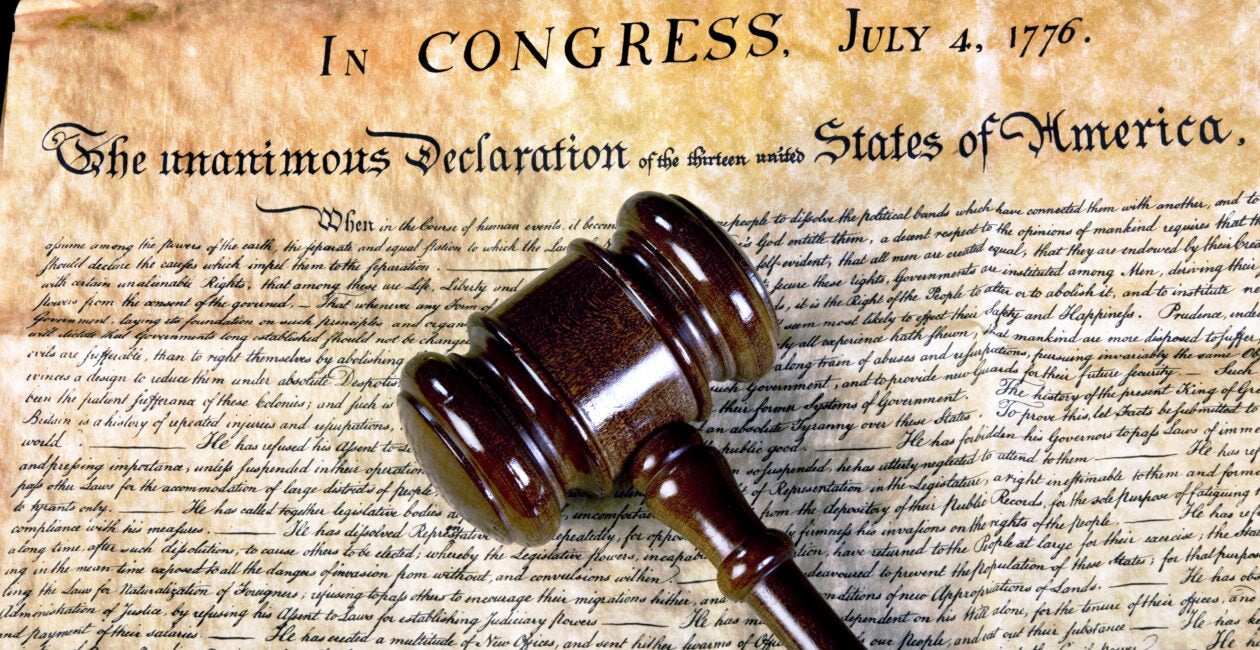 In CONGRESS, July 4, 1776.
The unanimous Declaration of the thirteen united States of America,
When in the Course of human events, it becom people to dissolve the political bands which have connected them with another, and to
assume among the powers of the earth, the separate and equal station to which the God entitle them, a decent respect to the opinions of mankind requires that
should declare the causes which impel them to the separation. self-evident, that all men are created equal, that they are endowed by their
with certain unalienable Rights, that among these are Life, Liberty and secure these rights, Governments are instituted among Men, deriving their
powers from the consent of the governed, — That whenever any Form of it is the Right of the People to alter or to abolish it, and to institute
Government, laying its foundation on such principles and organ seem most likely to effect their Safety and Happiness. Prudence,
will dictate that Governments long established should not be all experience hath shewn, that mankind are more disposed to suffer
evils are sufferable, than to right themselves by abolishing long train of abuses and usurpations, pursuing invariably the same
evinces a design to reduce them under absolute Despotis such Government, and to provide new Guards for their future security. — Such
been the patient sufferance of these Colonies; and such their former Systems of Government. The history of the present King of
Britain is a history of repeated injuries and usurpations, an absolute Tyranny over these States. To prove this, let Facts be submitted
world. He has refused his Assent to public good. He has forbidden his Governors to pass Laws of
and pressing importance, unless suspended in their operation so suspended, he has utterly neglected to attend to them. He has
pass other Laws for the accommodation of large districts of people of Representation in the Legislature, a right inestimable to them and
to tyrants only. He has called together legislative bodies from the depository of their Public Records, for the sole purpose of fatiguing
compliance with his measures. He has dissolved repeatedly, for firmness his invasions on the rights of the people. He has
along time, after such dissolutions, to cause others to be elected; whereby the Legislative powers, have returned to the People at large for their exercise; the
ing in the mean time exposed to all the dangers of invasion from without, and convulsions within. deavoured to prevent the population of these States; for that
ting the Laws for Naturalization of Foreigners; refusing to pass others to encourage their migrations hither, and onditions of new Appropriations of Lands. He has
Administration of Justice, by refusing his Assent to Laws for establishing Judiciary powers. He has dependent on his Will alone, for the tenure of their offices, and
and payment of their salaries. He has erected a multitude of New Offices, and sent hither swarms of our people, and eat out their substance. He has